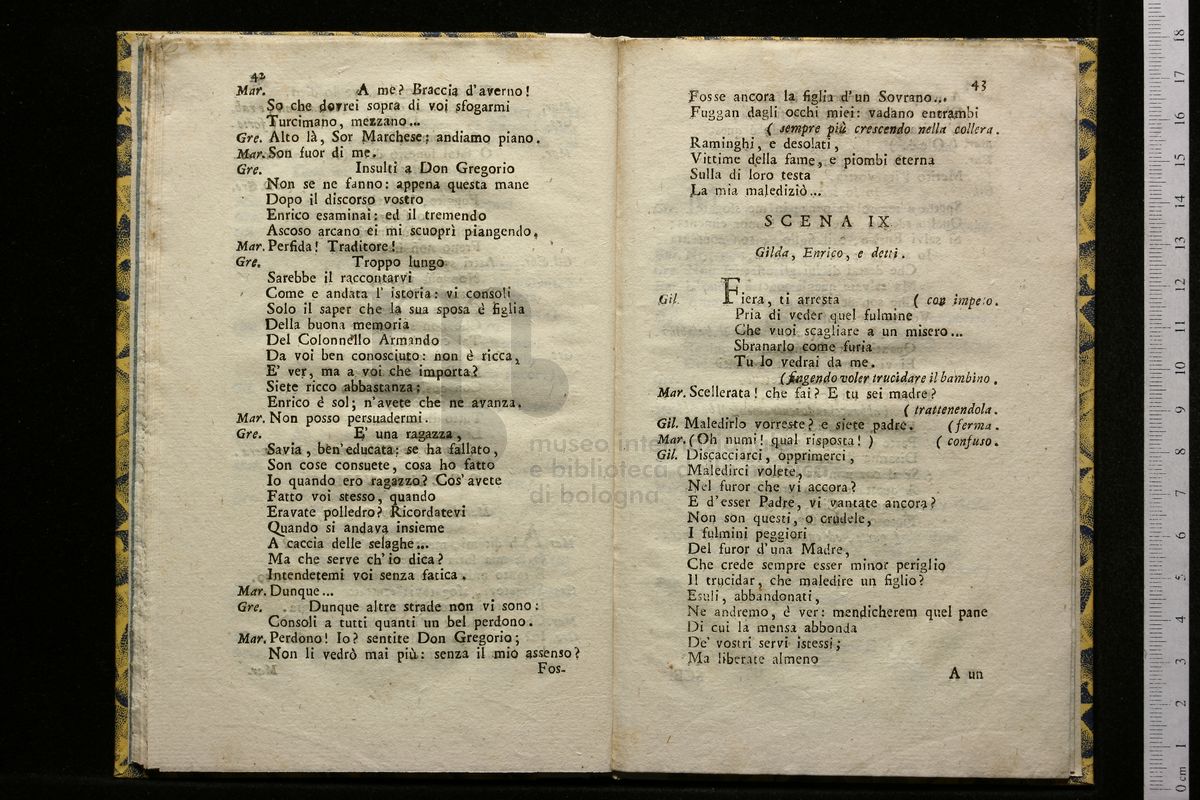 42
Mar. A me? Braccia d'averno!
So che dovrei sopra di voi sfogarmi
Turcimano, mezzano...
Gre. Alto là, Sor Marchese: andiamo piano.
Mar. Son fuor di me.
Gre. Insulti a Don Gregorio
Non se ne fanno: appena questa mane
Dopo il discorso vostro
Enrico esaminai: ed il tremendo
Ascoso arcano ei mi scuoprì piangendo,
Mar. Perfida! Traditore!
Gre. Troppo lungo
Sarebbe il raccontarvi
Come e andata l' istoria: vi consoli
Solo il saper che la sua sposa è figlia
Della buona memoria
Del Colonnello Armando
Da voi ben conosciuto: non è ricca,
E' ver, ma a voi che importa?
Siete ricco abbastanza:
Enrico è sol; n'avete che ne avanza.
Mar. Non posso persuadermi.
Gre. E' una ragazza,
Savia, ben'educata: se ha fallato,
Son cose consuete, cosa ho fatto
Io quando ero ragazzo? Cos' avete
Fatto voi stesso, quando
Eravate polledro? Ricordatevi
Quando si andava insieme
A caccia delle selaghe...
Ma che serve ch' io dica?
Intendetemi voi senza fatica.
Mar. Dunque...
Gre. Dunque altre strade non vi sono:
Consoli a tutti quanti un bel perdono.
Mar. Perdono! Io? sentite Don Gregorio;
Non li vedrò mai più: senza il mio assenso?
Fos-
43
Fosse ancora la figlia d'un Sovrano...
Fuggan dagli occhi miei: vadano entrambi
( sempre più crescendo nella collera.
Raminghi, e desolati,
Vittime della fame, e piombi eterna
Sulla di loro testa
La mia malediziò...
SCENA IX.
Gilda, Enrico, e detti.
Gil. Fiera, ti arresta ( con impeto.
Pria di veder quel fulmine
Che vuoi scagliare a un misero...
Sbranarlo come furia
Tu lo vedrai da me.
( fingendo voler trucidare il bambino.
Mar. Scellerata! che fai? E tu sei madre?
( trattenendola.
Gil. Maledirlo vorreste? e siete padre. ( ferma.
Mar. ( Oh numi! qual risposta! ) ( confuso.
Gil. Discacciarci, opprimerci,
Maledirci volete,
Nel furor che vi accora?
E d'esser Padre, vi vantate ancora?
Non son questi, o crudele,
I fulmini peggiori
Del furor d'una Madre,
Che crede sempre esser minor periglio
Il trucidar, che maledire un figlio?
Esuli, abbandonati,
Ne andremo, è ver: mendicherem quel pane
Di cui la mensa abbonda
De' vostri servi istessi;
Ma liberate almeno
A un
museo inte
e biblioteca d
di bologna
0 cm 1 2 3 4 5 6 7 8 9 10 11 12 13 14 15 16 17 18